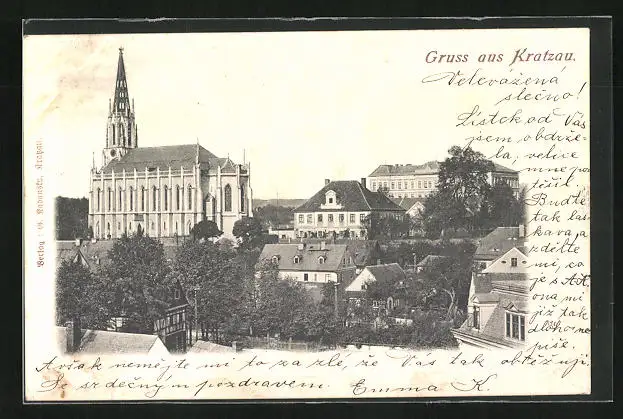 Gruss aus Kratzau.
Velevážená
slečno!
Lístek od Vás
jsem obdrže-
la, velice
mne po-
těšil.
Buďte
tak las-
kava, a
zdělte
mi, co
je s A.
ona mi
již tak
dlouho ne-
píše.
Avšak nemějte mi to za zlé, že Vás tak obtěžuji.
Se srdečným pozdravem Emma K.
Verlag
Kratzau.